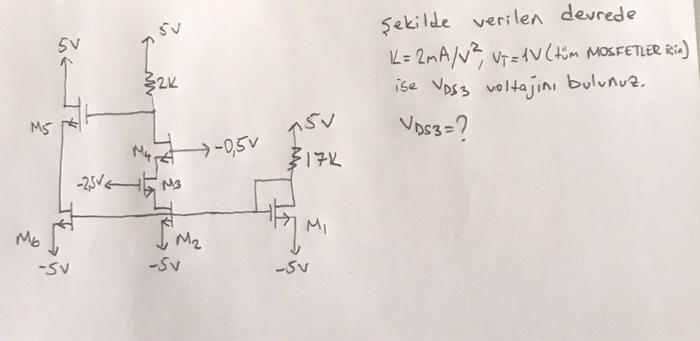 Şekilde verilen devrede
K=2mA/V², VT=1V (tüm MOSFETLER için)
ise VDS3 voltajını bulunuz.
VDS3=?
5V
5V
2K
M5
M4
-0,5V
5V
17K
-2,5V
M3
M6
M2
M1
-5V
-5V
-5V